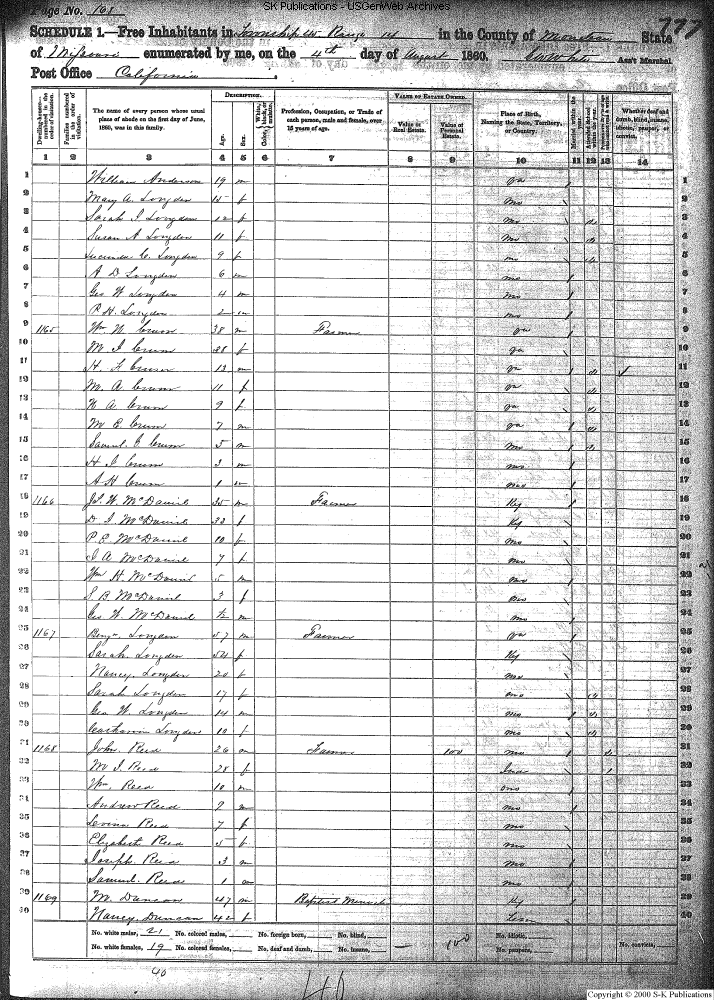 SK Publications - USGenWeb Archives
Page No. 168
777
SCHEDULE 1.—Free Inhabitants in Township 45 Range 14 in the County of Moniteau State
of Missouri enumerated by me, on the 4th day of August 1860. Ass't Marshal.
Post Office California.
Dwelling-houses— numbered in the order of visitation.
Families numbered in the order of visitation.
The name of every person whose usual place of abode on the first day of June, 1860, was in this family.
DESCRIPTION.
Age.
Sex.
Color, White, black, or mulatto.
Profession, Occupation, or Trade of each person, male and female, over 15 years of age.
VALUE OF ESTATE OWNED.
Value of Real Estate.
Value of Personal Estate.
Place of Birth, Naming the State, Territory, or Country.
Married within the year.
Whether deaf and dumb, blind, insane, idiotic, pauper, or convict.
1 2 3 4 5 6 7 8 9 10 11 12 13 14
1 William Anderson 19 m Va 1
2 Mary A. Longden 15 f Mo 2
3 Sarah J Longden 12 f Mo 3
4 Susan A Longden 11 f Mo 4
5 Longden 9 f Mo 5
6 A D Longden 6 m Mo 6
7 Geo W Longden 4 m Mo 7
8 P. H. Longden 2 m Mo 8
9 1165 Wm N Crum 38 m Farmer Va 9
10 M J Crum 28 f Va 10
11 H. Crum 13 m Va 11
12 M. A Crum 11 f Va 12
13 N A Crum 9 f Va 13
14 M E Crum 7 m Va 14
15 Samuel Crum 5 m Mo 15
16 H J Crum 3 m Mo 16
17 A H Crum 1 m Mo 17
18 1166 W. McDaniel 35 m Farmer Ky 18
19 D. J. McDaniel 33 f Ky 19
20 P E McDaniel 10 f Mo 20
21 J A McDaniel 7 f Mo 21
22 Wm H McDaniel 5 m Mo 22
23 S B McDaniel 3 f Mo 23
24 Geo W. McDaniel ½ m Mo 24
25 1167 Benj. Longden 57 m Farmer Va 25
26 Sarah Longden 54 f Ky 26
27 Nancy Longden 20 f Mo 27
28 Sarah Longden 17 f Mo 28
29 Geo W. Longden 14 m Mo 29
30 Catharine Longden 10 f Mo 30
31 1168 John Reed 26 m Farmer 100 Mo 31
32 M J Reed 28 f Inda 32
33 Wm Reed 10 m Mo 33
34 Andrew Reed 9 m Mo 34
35 Levina Reed 7 f Mo 35
36 Elizabeth Reed 5 f Mo 36
37 Joseph Reed 3 m Mo 37
38 Samuel Reed 1 m Mo 38
39 1169 M. Duncan 47 m Baptist Minister Ky 39
40 Nancy Duncan 42 f Tenn 40
No. white males, 21 No. colored males, No. foreign born, No. blind, No. idiotic,
No. white females, 19 No. colored females, No. deaf and dumb, No. insane, — 100 No. paupers, No. convicts,
40
40
Copyright © 2000 S-K Publications